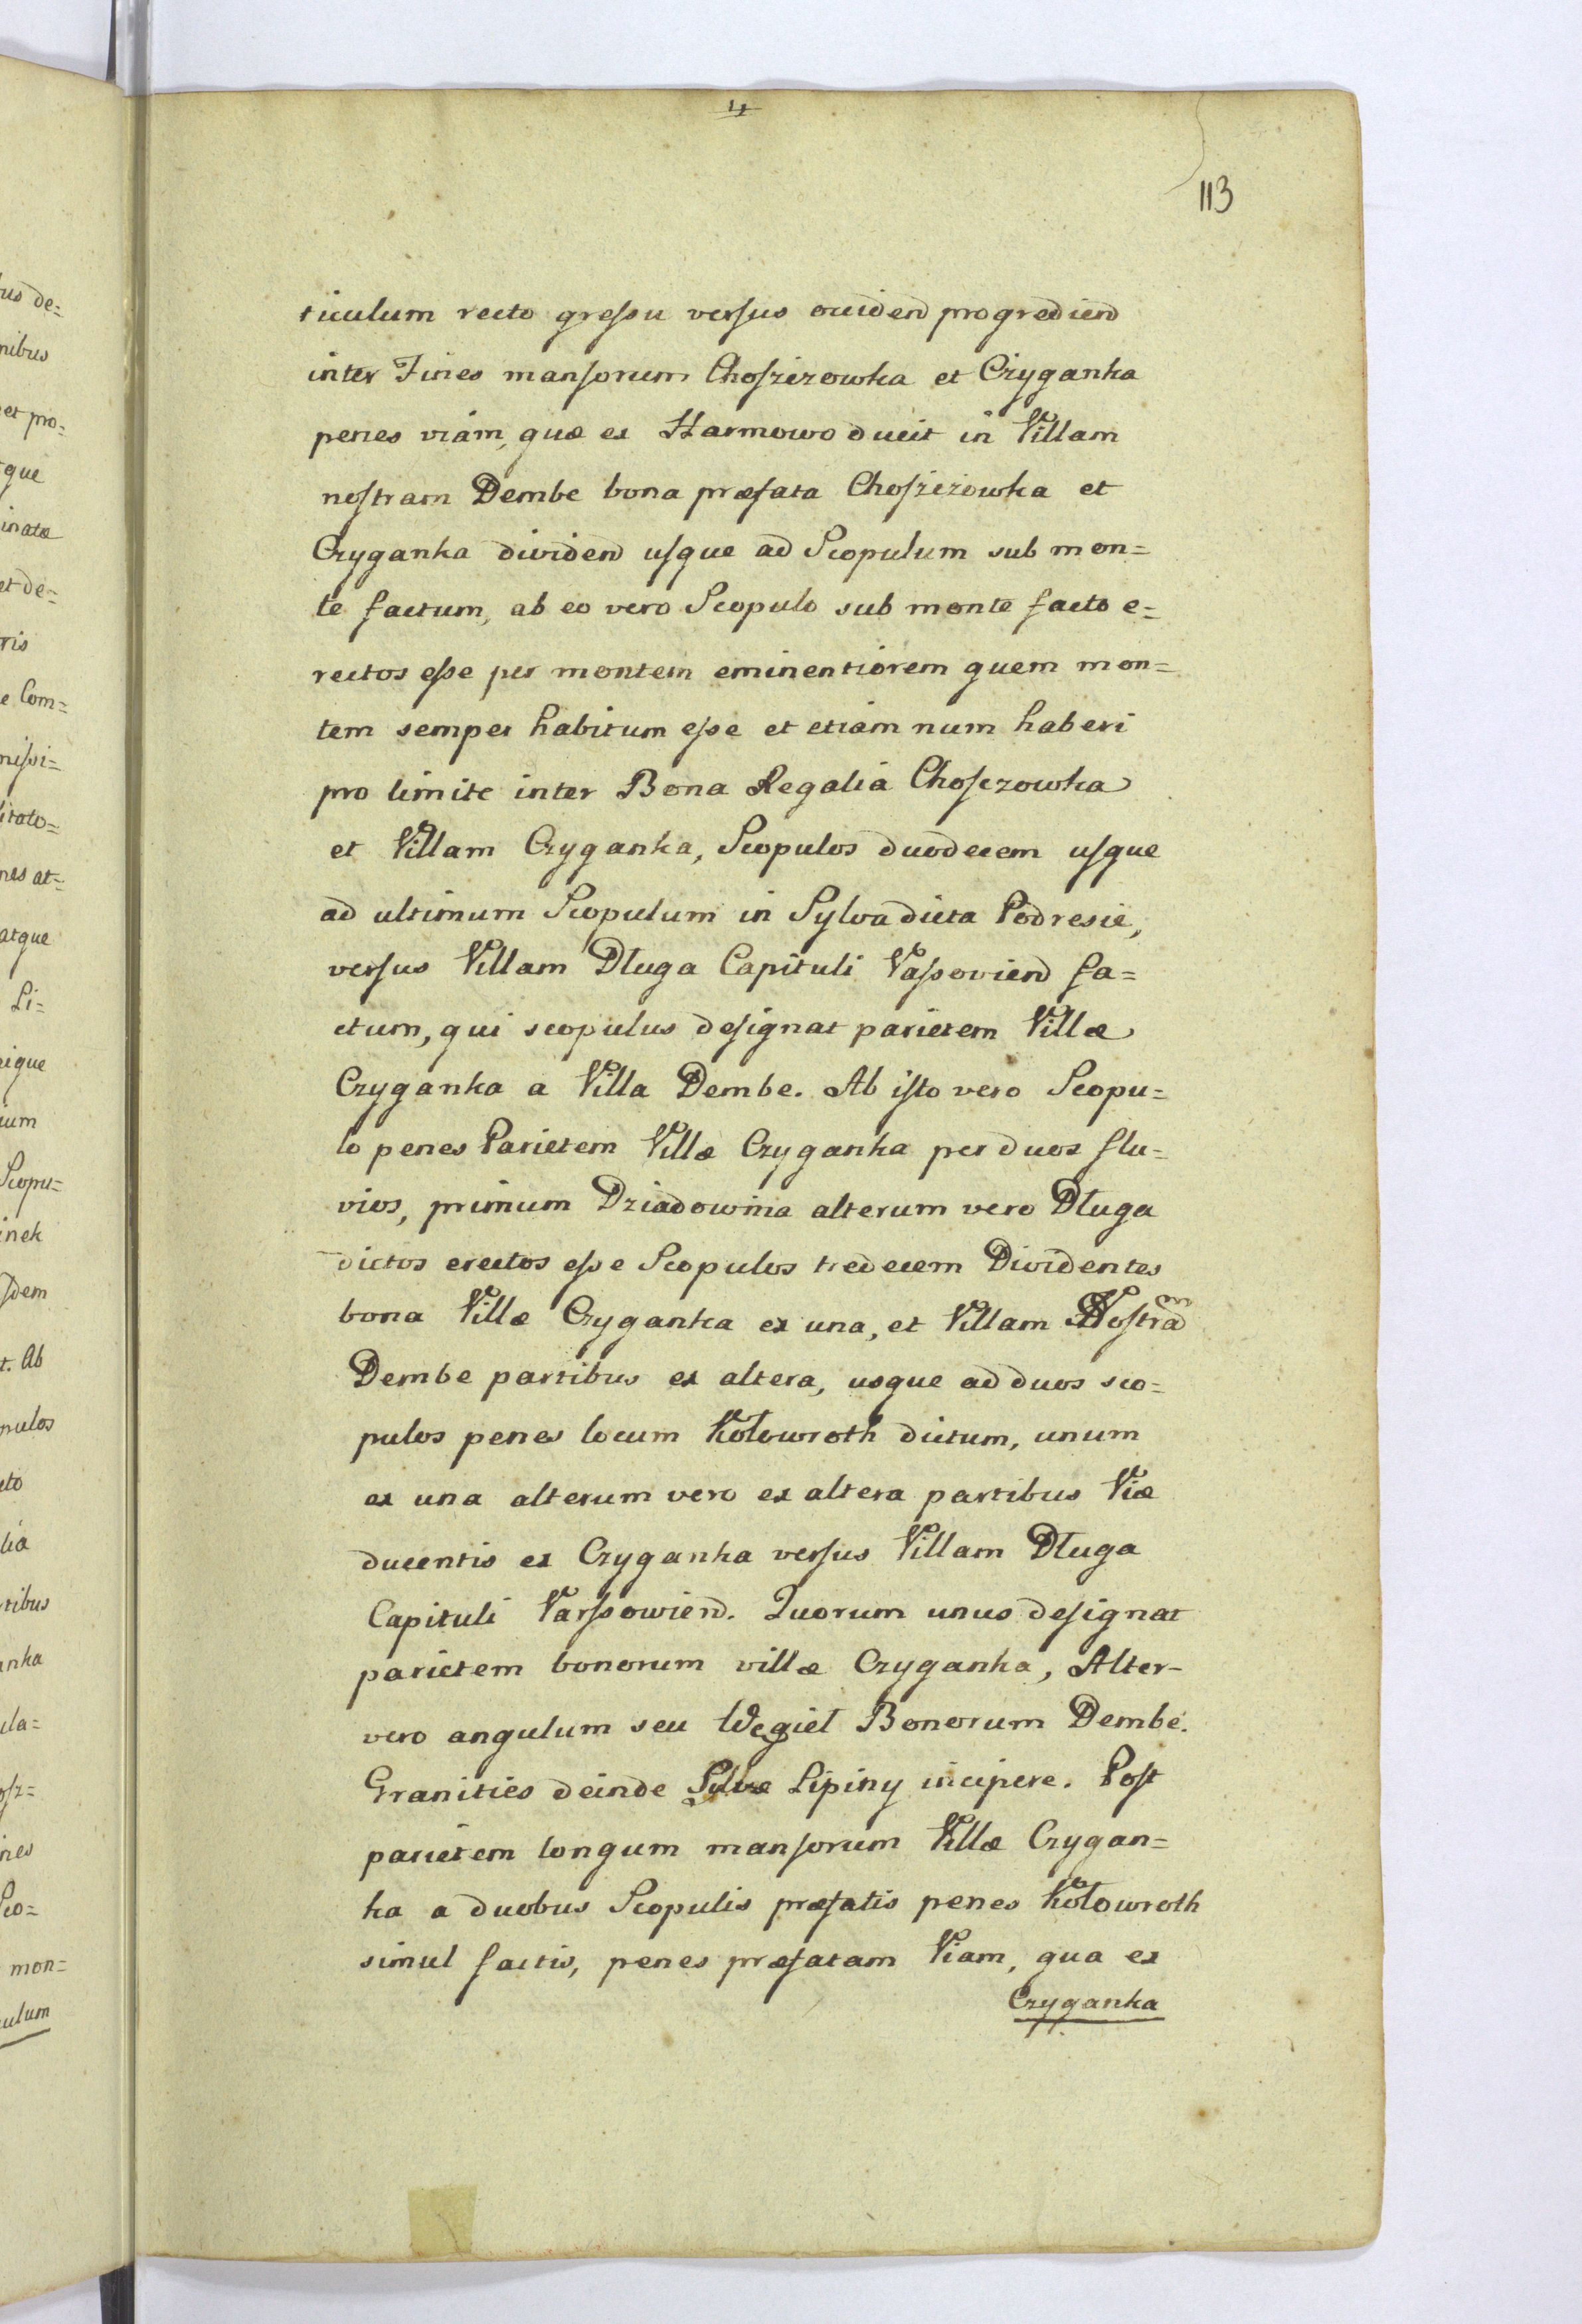 4
113
us de=
nibus
et pro=
que
inatæ
et de=
ris
e Com=
missi=
litato=
nes at=
atque
Li=
nique
ium
Scopu=
inek
sdem
t. Ab
pulos
cto
lia
rtibus
anka
ula=
osz=
ines
Sco=
mon=
culum
ticulum recto greſsu verſus occiden progredien
inter Fines manſorum Choſzczowka et Czyganka
penes viam, quæ ex Harmowo ducit in Villam
noſtram Dembe bona præfata Choſzczowka et
Czyganka dividen uſque ad Scopulum sub mon=
te factum, ab eo vero Scopulo sub monte facto e=
rectos eſse per montem eminentiorem quem mon=
tem semper habitum eſse et etiam num haberi
pro limite inter Bona Regalia Choſczowka
et Villam Czyganka, Scopulos duodecem uſque
ad ultimum Scopulum in Sylva dicta Podresie,
verſus Villam Dluga Capituli Vaſsovien fa=
ctum, qui scopulus deſignat parietem Villæ
Czyganka a Villa Dembe. Ab iſto vero Scopu=
lo penes Parietem Villæ Czyganka per duos flu=
vios, primum Dziadownia alterum vero Długa
dictos erectos eſse Scopulos tredecem Dividentes
bona Villæ Czyganka ex una, et Villam Noſtram
Dembe partibus ex altera, usque ad duos sco=
pulos penes locum Kołowroth dictum, unum
ex una alterum vero ex altera partibus Viæ
ducentis ex Czyganka verſus Villam Długa
Capituli Varſsowien. Quorum unus deſignat
parietem bonorum villæ Czyganka, Alter-
vero angulum seu Węgieł Bonorum Dembe.
Granities deinde Sylvæ Lipiny incipere. Poſt
parietem longum manſorum Villæ Czygan=
ka a duobus Scopulis præfatis penes Kołowroth
simul factis, penes præfatam Viam, qua ex
Czyganka